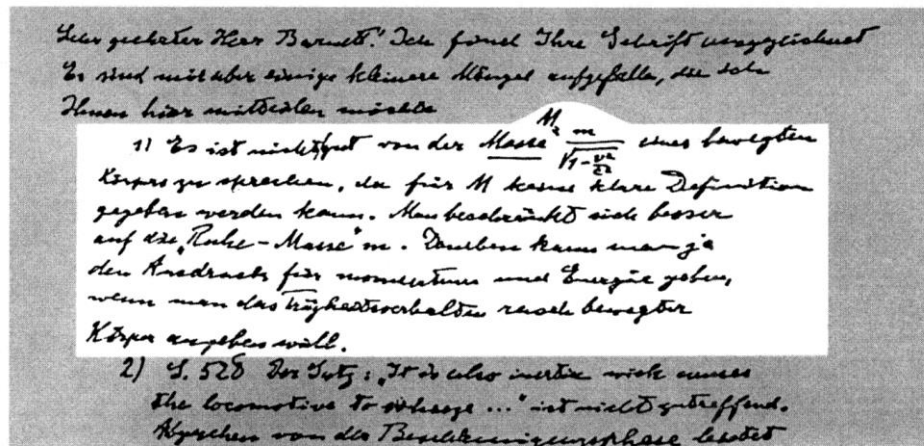 Sehr geehrter Herr Barnett! Ich fand Ihre Schrift ausgezeichnet
Es sind mir aber einige kleinere Mängel aufgefallen, die ich
Ihnen hier mitteilen möchte
1) Es ist nicht gut von der Masse M = m/√(1-v²/c²) eines bewegten
Körpers zu sprechen, da für M keine klare Definition
gegeben werden kann. Man beschränkt sich besser
auf die „Ruhe-Masse" m. Daneben kann man ja
den Ausdruck für momentum und Energie geben,
wenn man das Trägheitsverhalten rasch bewegter
Körper angeben will.
2) S. 528 Der Satz: „It is also inertia wich causes
the locomotive to wheeze ..." ist nicht zutreffend.
Abgesehen von der Beschleunigungsphase leistet